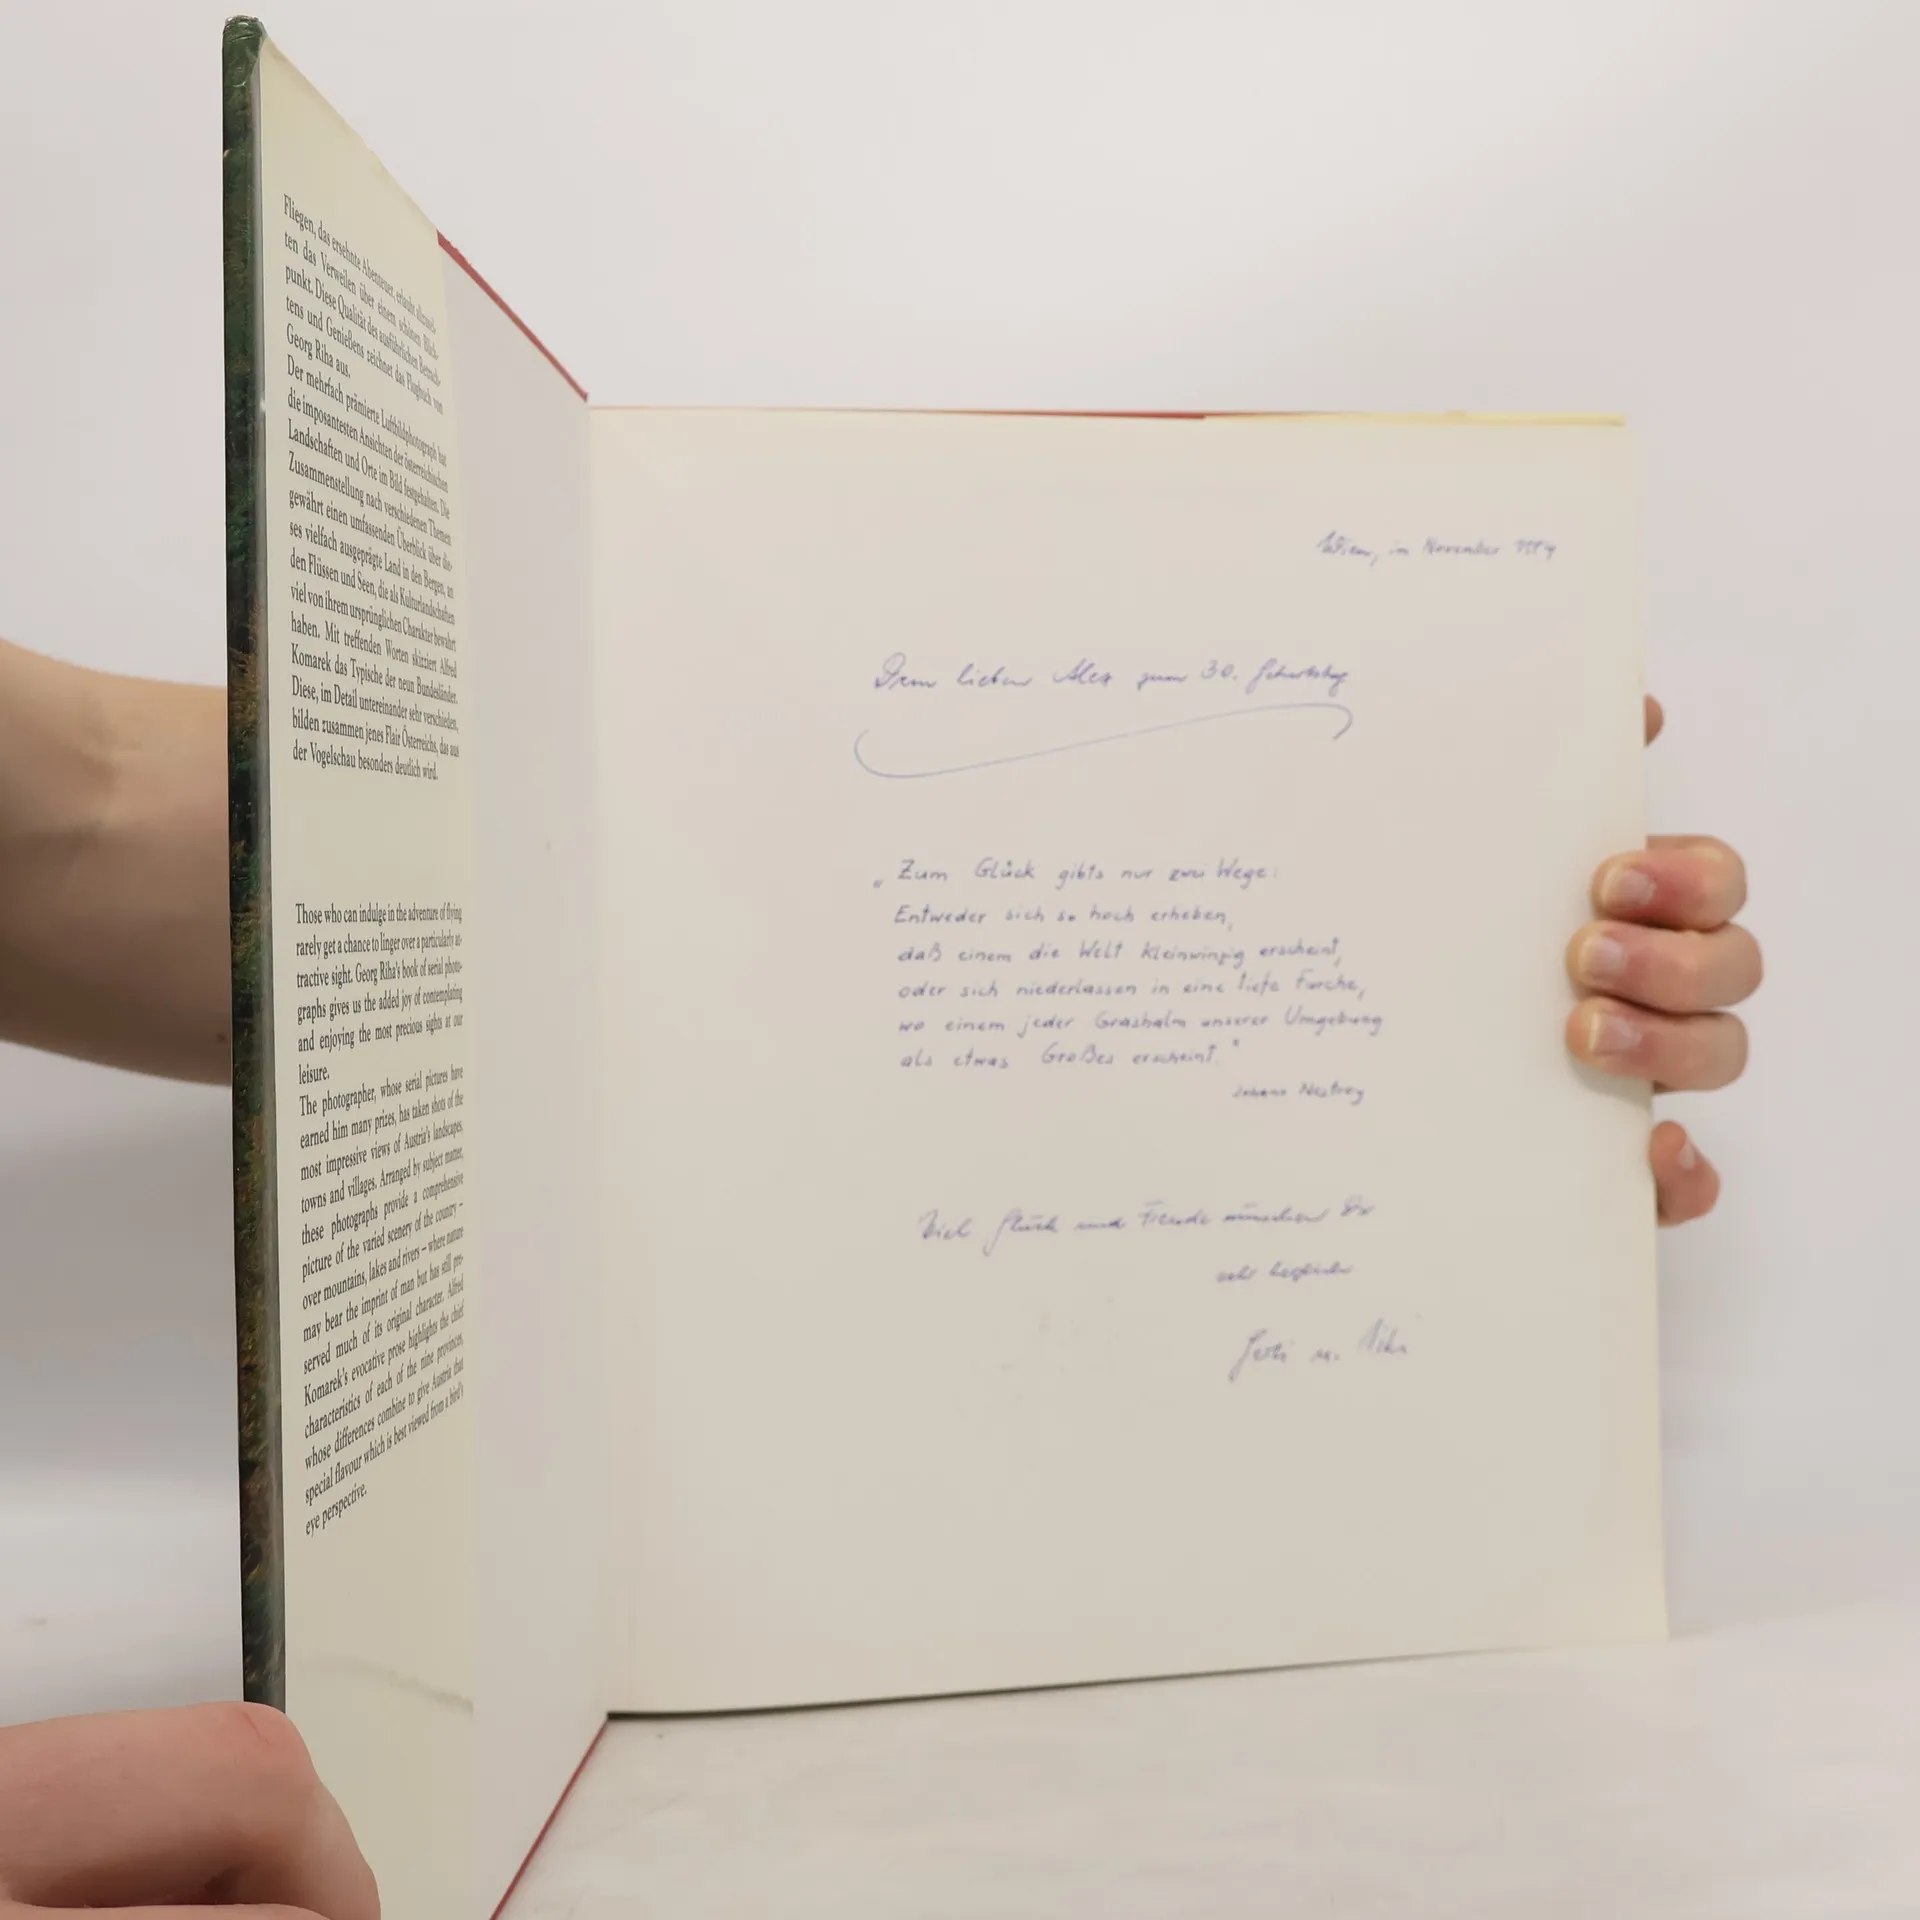 Fliegen, das ersehnte Abenteuer, erlaubt allzusel-
ten das Verweilen über einem schönen Blick-
punkt. Diese Qualität des ausführlichen Betrach-
tens und Genießens zeichnet das Flugbuch von
Georg Riha aus.
Der mehrfach prämierte Luftbildphotograph hat
die imposantesten Ansichten der österreichischen
Landschaften und Orte im Bild festgehalten. Die
Zusammenstellung nach verschiedenen Themen
gewährt einen umfassenden Überblick über die-
ses vielfach ausgeprägte Land in den Bergen, an
den Flüssen und Seen, die als Kulturlandschaften
viel von ihrem ursprünglichen Charakter bewahrt
haben. Mit treffenden Worten skizziert Alfred
Komarek das Typische der neun Bundesländer.
Diese, im Detail untereinander sehr verschieden,
bilden zusammen jenes Flair Österreichs, das aus
der Vogelschau besonders deutlich wird.
Those who can indulge in the adventure of flying
rarely get a chance to linger over a particularly at-
tractive sight. Georg Riha's book of serial photo-
graphs gives us the added joy of contemplating
and enjoying the most precious sights at our
leisure.
The photographer, whose serial pictures have
earned him many prizes, has taken shots of the
most impressive views of Austria's landscapes,
towns and villages. Arranged by subject matter,
these photographs provide a comprehensive
picture of the varied scenery of the country –
over mountains, lakes and rivers – where nature
may bear the imprint of man but has still pre-
served much of its original character. Alfred
Komarek's evocative prose highlights the chief
characteristics of each of the nine provinces,
whose differences combine to give Austria that
special flavour which is best viewed from a bird's
eye perspective.
Wien, im November
Dem lieben Alex zum 30. Geburtstag
„Zum Glück gibts nur zwei Wege:
Entweder sich so hoch erheben,
daß einem die Welt kleinwinzig erscheint,
oder sich niederlassen in eine tiefe Furche,
wo einem jeder Grashalm unserer Umgebung
als etwas Großes erscheint."
Johann Nestroy
Viel Glück und Freude wünschen Dir
sehr herzlich
u.